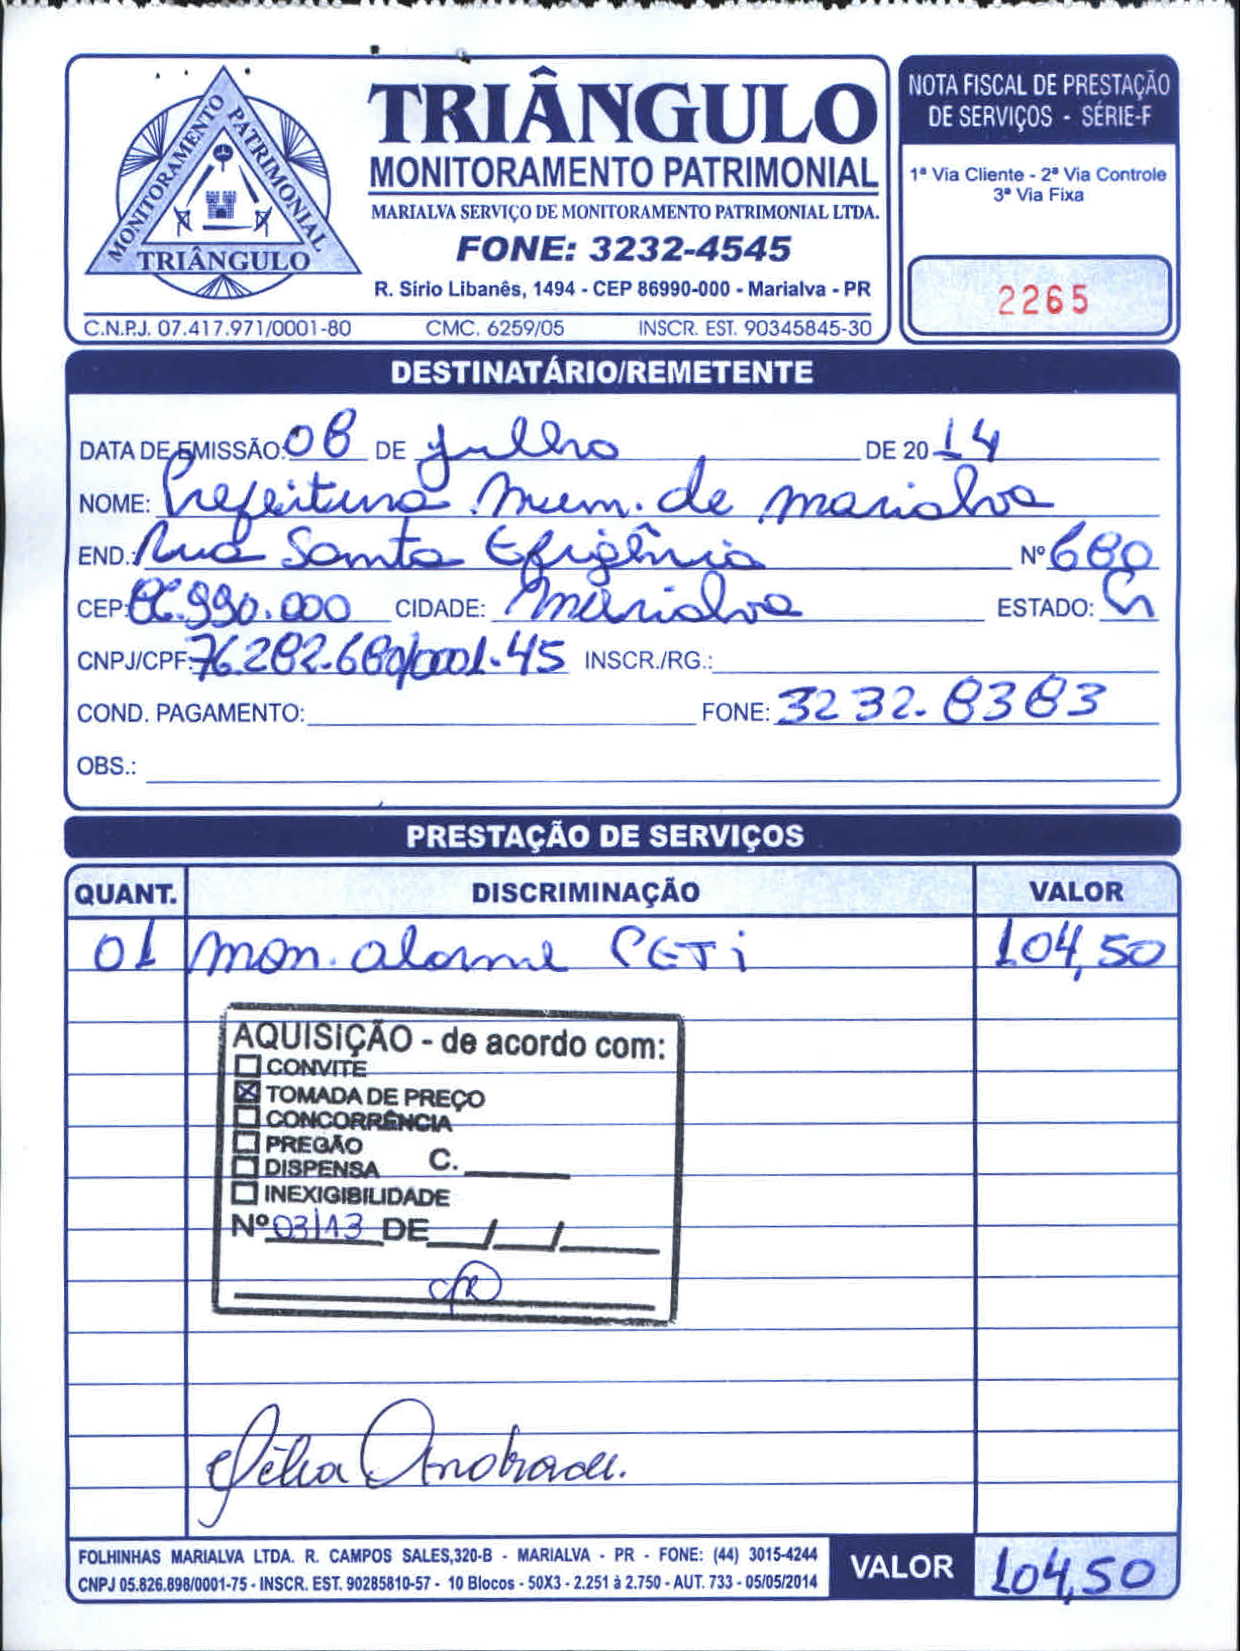 MONITORAMENTO PATRIMONIAL
TRIÂNGULO
TRIÂNGULO
MONITORAMENTO PATRIMONIAL
MARIALVA SERVIÇO DE MONITORAMENTO PATRIMONIAL LTDA.
FONE: 3232-4545
R. Sírio Libanês, 1494 - CEP 86990-000 - Marialva - PR
C.N.P.J. 07.417.971/0001-80 CMC. 6259/05 INSCR. EST. 90345845-30
NOTA FISCAL DE PRESTAÇÃO
DE SERVIÇOS - SÉRIE-F
1ª Via Cliente - 2ª Via Controle
3ª Via Fixa
2265
DESTINATÁRIO/REMETENTE
DATA DE EMISSÃO: 08 DE julho DE 2014
NOME: Prefeitura Mum. de Marialva
END.: Rua Santa Efigênia Nº 680
CEP: 86.990.000 CIDADE: Marialva ESTADO:
CNPJ/CPF: 76.282.680/0001-45 INSCR./RG.:
COND. PAGAMENTO: FONE: 3232-8383
OBS.:
PRESTAÇÃO DE SERVIÇOS
QUANT. DISCRIMINAÇÃO VALOR
01 mon. alarme PETi 104,50
AQUISIÇÃO - de acordo com:
CONVITE
TOMADA DE PREÇO
CONCORRÊNCIA
PREGÃO
DISPENSA C.
INEXIGIBILIDADE
Nº 03/13 DE / /
Célia Andrade.
FOLHINHAS MARIALVA LTDA. R. CAMPOS SALES,320-B - MARIALVA - PR - FONE: (44) 3015-4244
CNPJ 05.826.898/0001-75 - INSCR. EST. 90285810-57 - 10 Blocos - 50X3 - 2.251 à 2.750 - AUT. 733 - 05/05/2014
VALOR 104,50